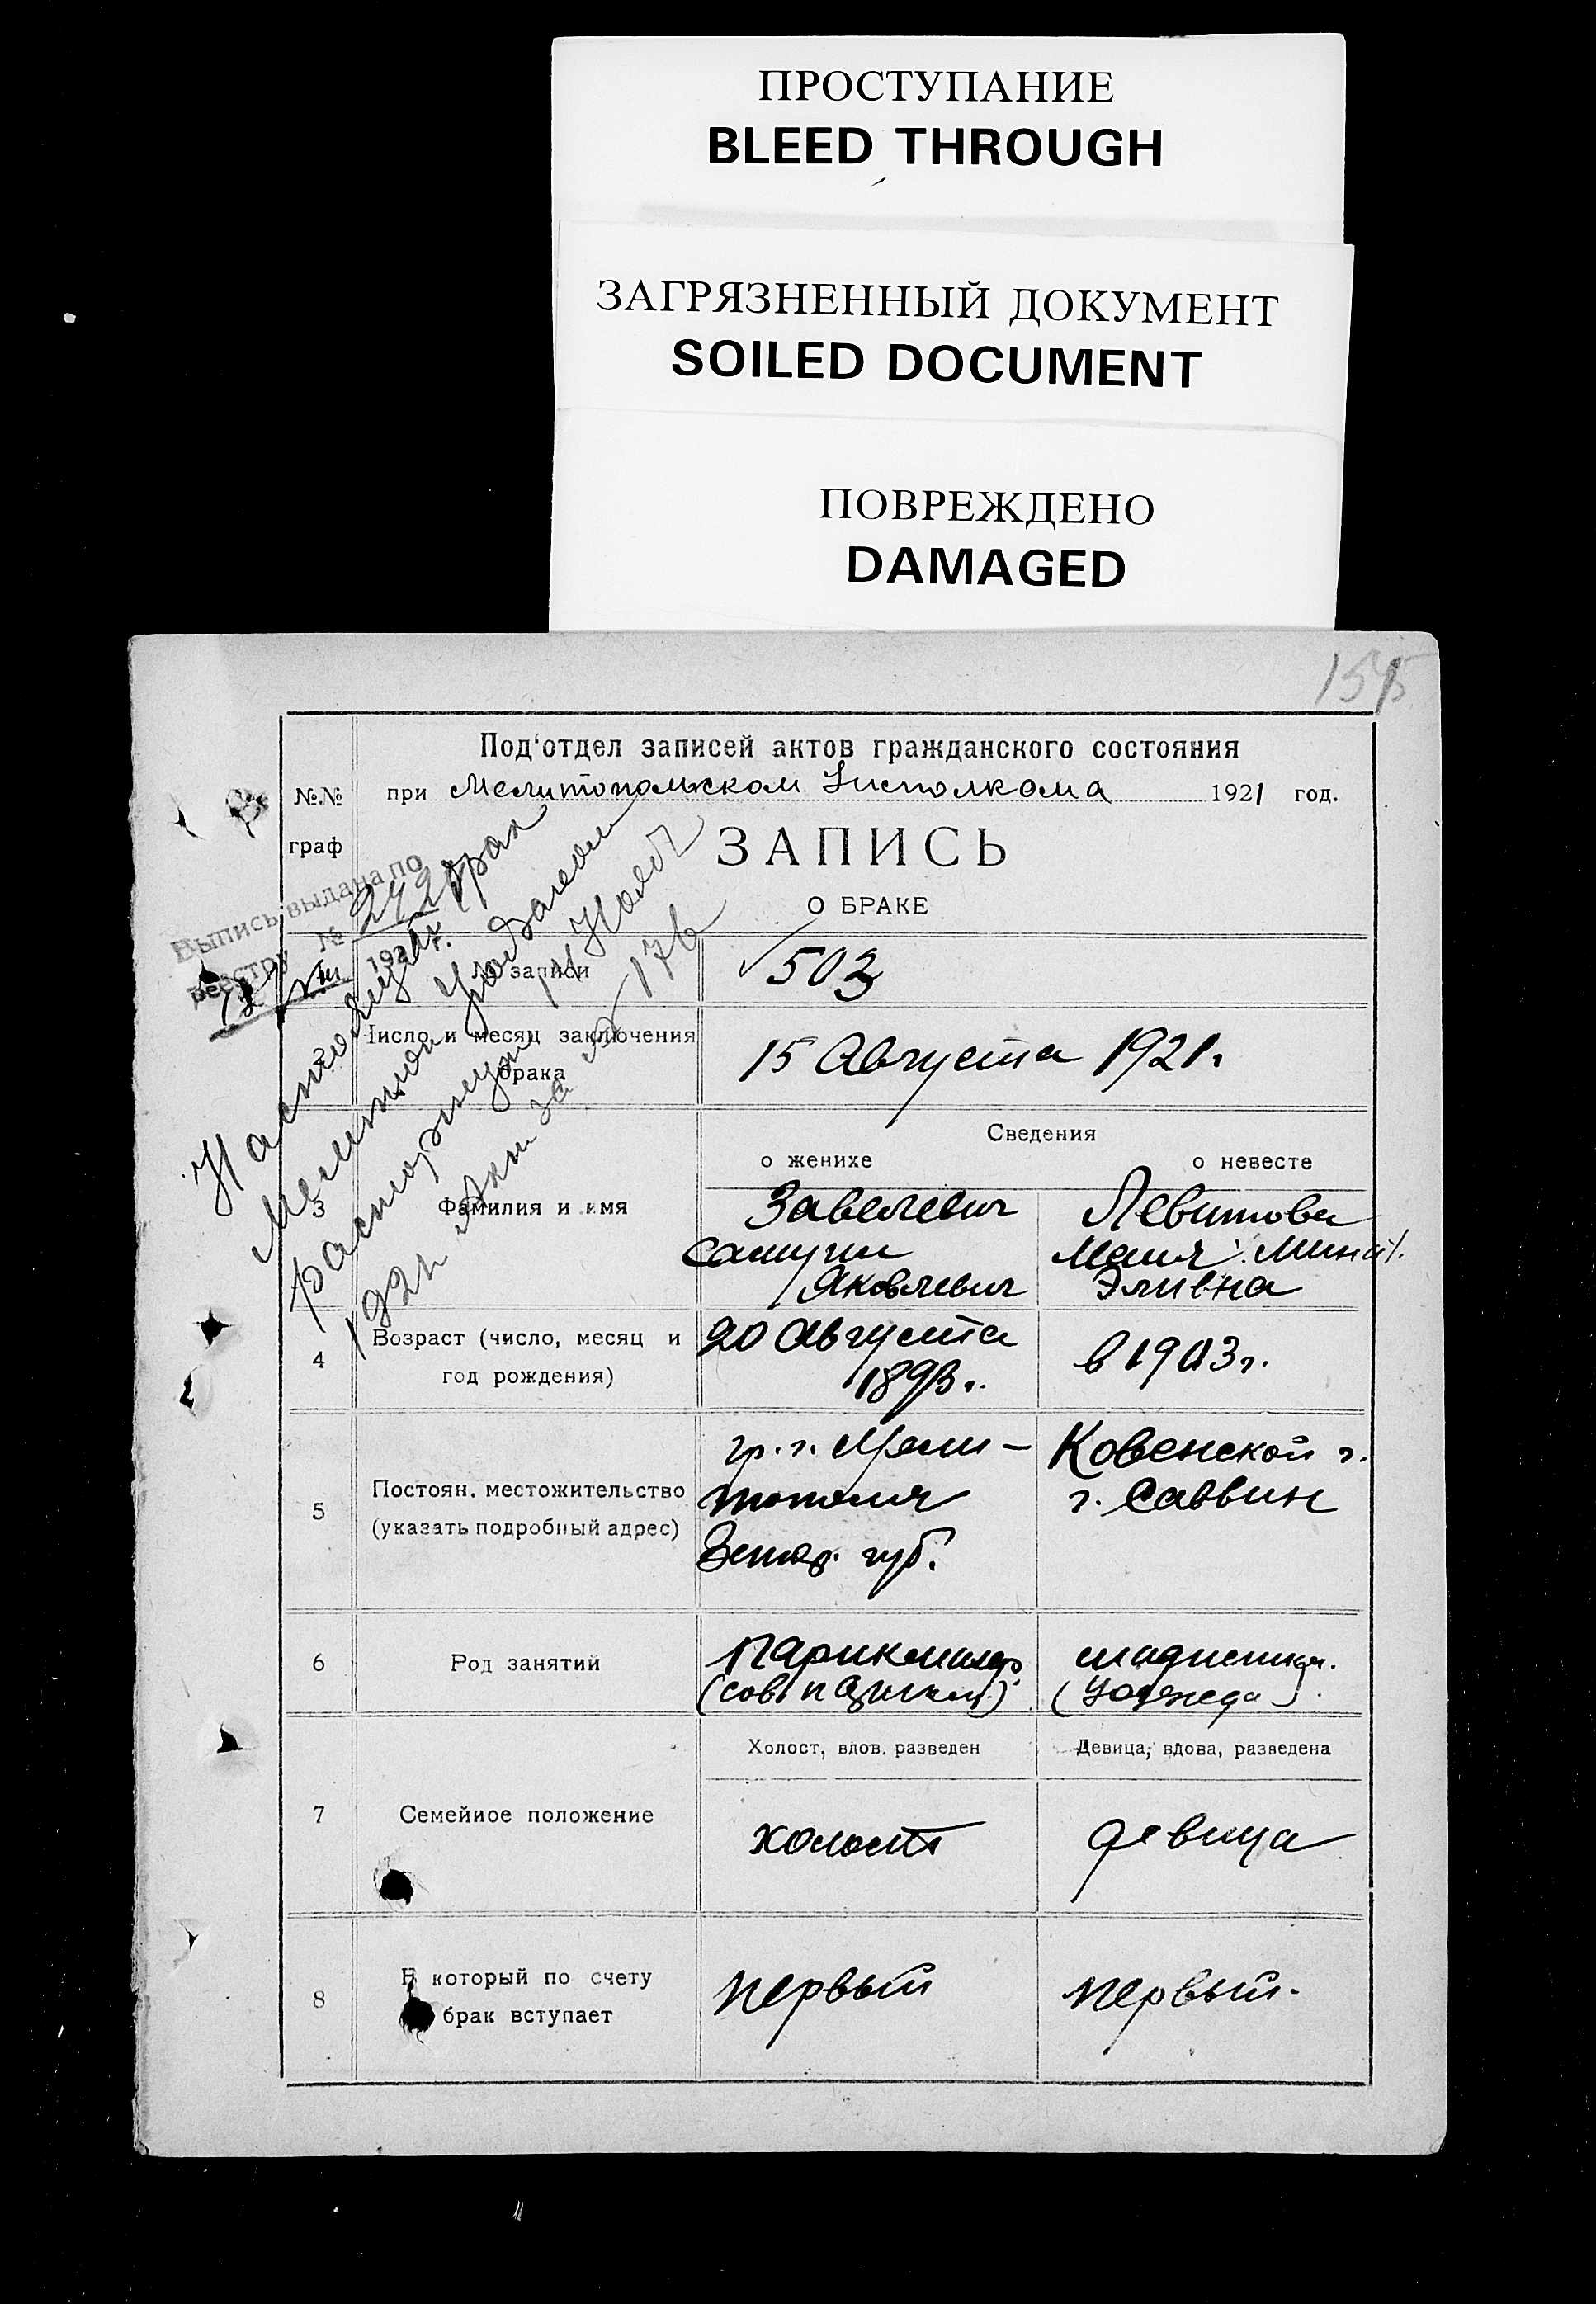 ПРОСТУПАНИЕ
BLEED THROUGH
ЗАГРЯЗНЕННЫЙ ДОКУМЕНТ
SOILED DOCUMENT
ПОВРЕЖДЕНО
DAMAGED
155
Под'отдел записей актов гражданского состояния
№.№ граф
при Мелитопольском Исполкома 1921 год.
ЗАПИСЬ
О БРАКЕ
Выпись выдана по
реестру №
192
Настоящий брак
Мелитоп Уозагсом
расторгнут 14 Нояб
192 г. Акт за № 176
№ записи
503
2
Число и месяц заключения
брака
15 Августа 1921.
Сведения
о женихе
о невесте
3
Фамилия и имя
Завелевич
Самуил
Яковлевич
Левитова
Маня (Мина).
Эливна
4
Возраст (число, месяц и
год рождения)
20 Августа
1893 г.
в 1903 г.
5
Постоян. местожительство
(указать подробный адрес)
гр. г. Мели-
тополя
Запор. губ.
Ковенской г.
г. Саввин
6
Род занятий
Парикмахер
Холост, вдов. разведен
Девица, вдова, разведена
7
Семейное положение
холост
девица
8
В который по счету
брак вступает
первый
первый.